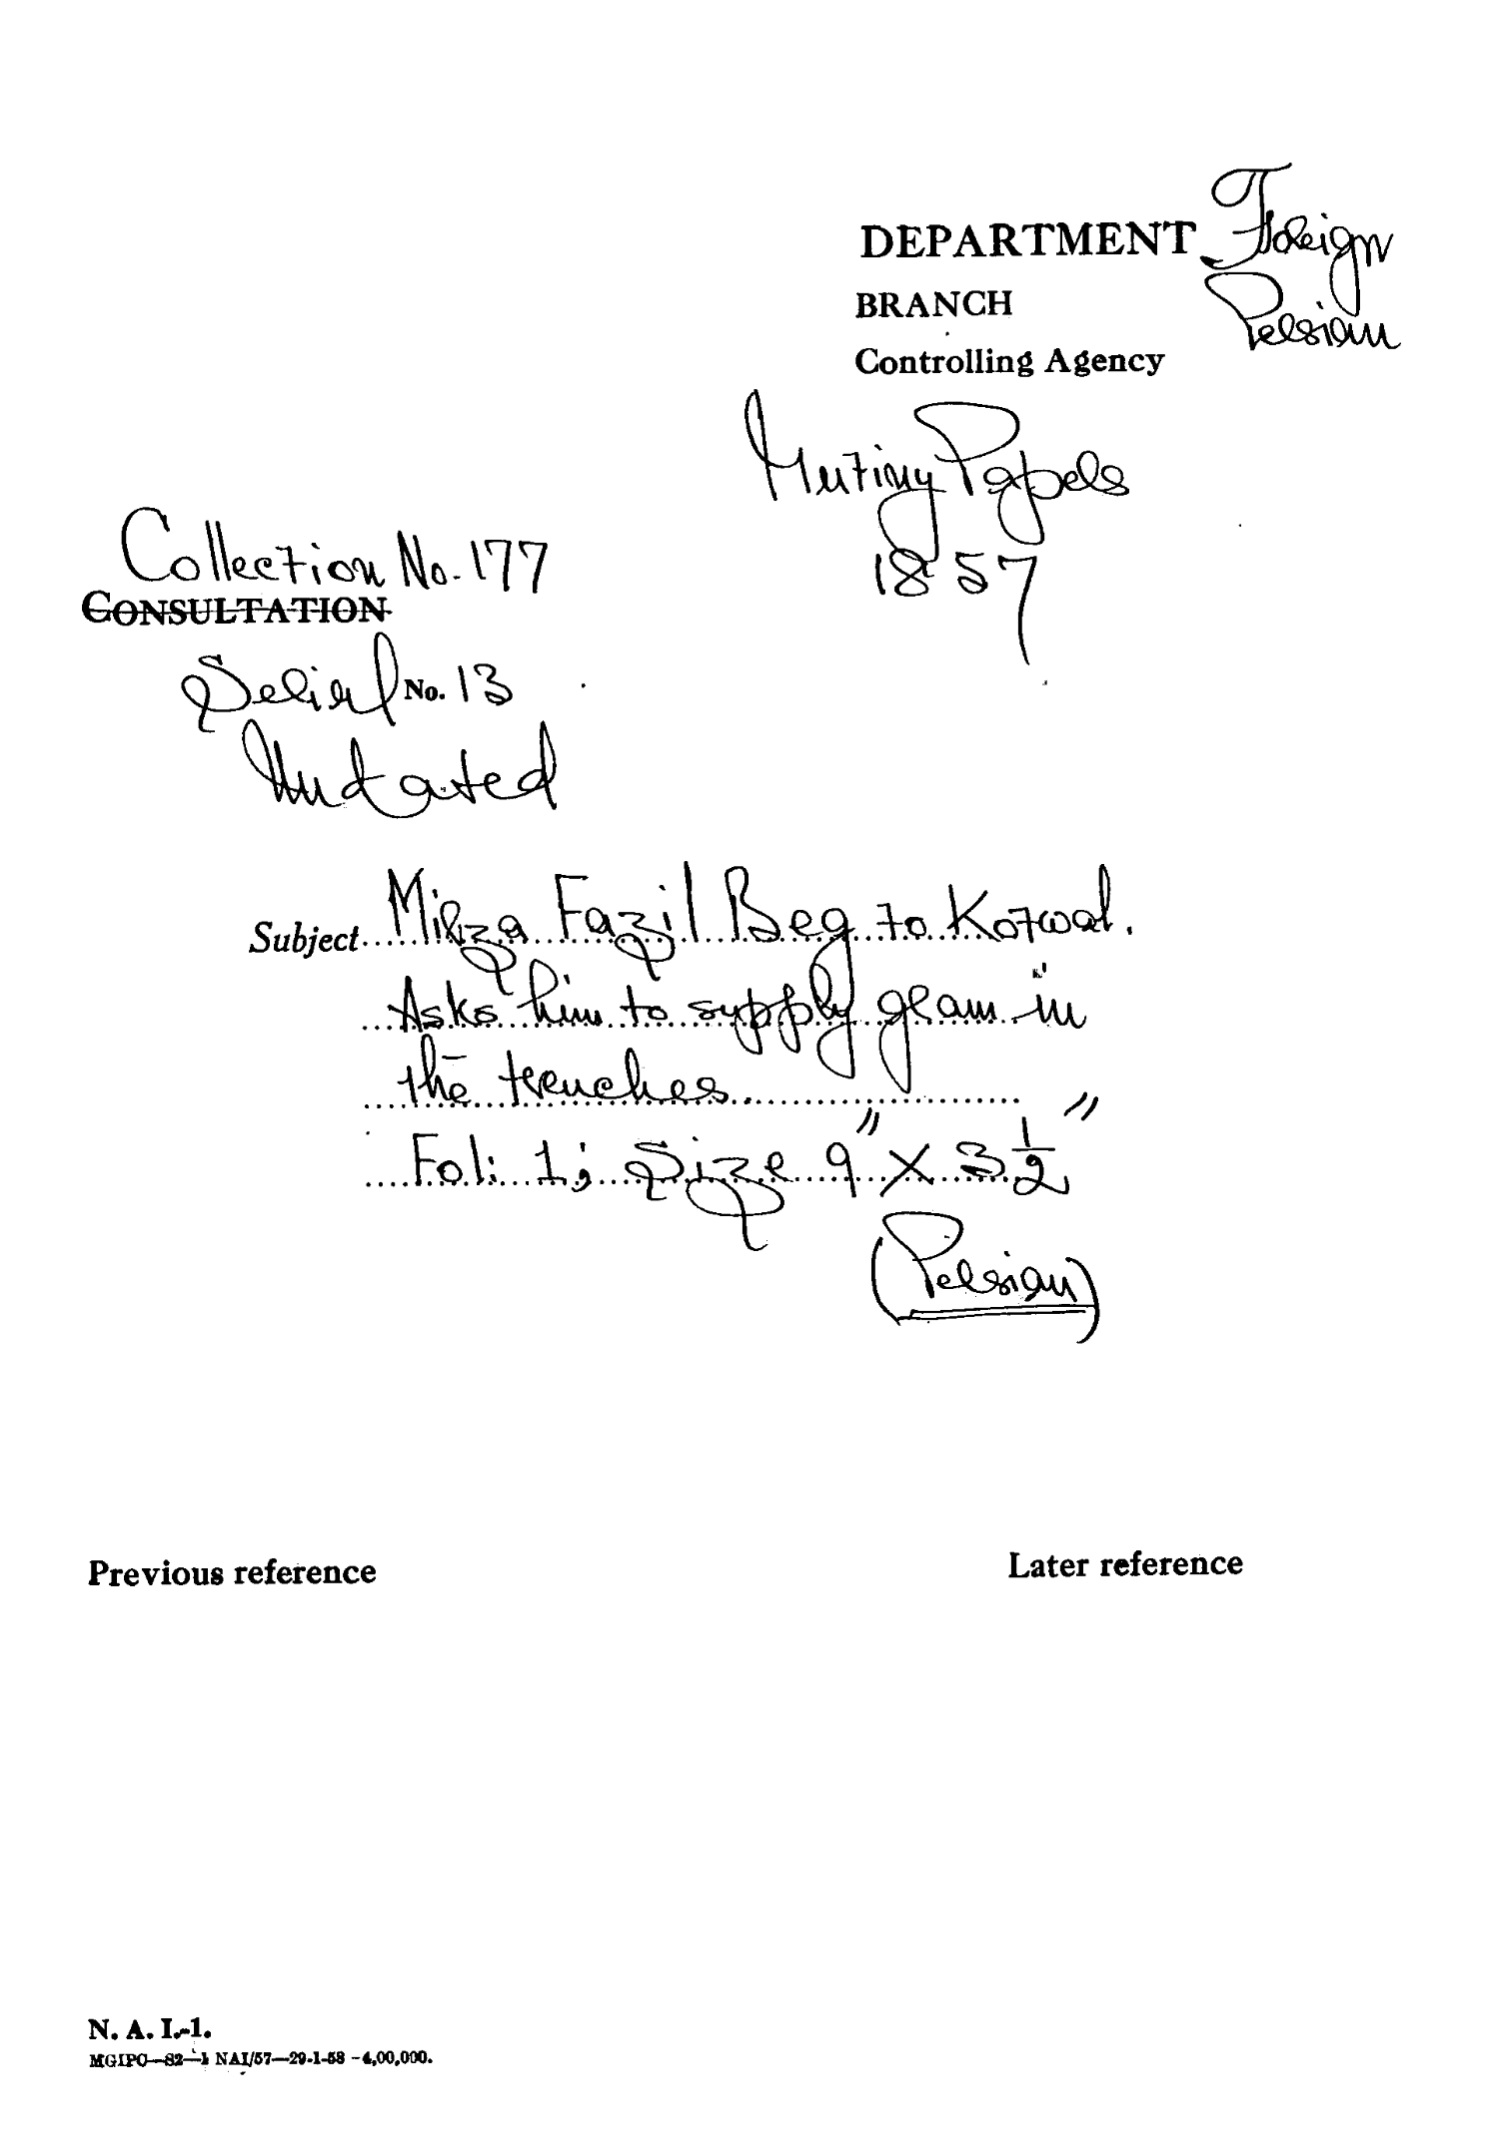 DEPARTMENT Foreign
BRANCH Persian
Controlling Agency
Mutiny Papers
1857
Collection No. 177
CONSULTATION
Serial No. 13
Undated
Subject Mirza Fazil Beg to Kotwal.
Asks him to supply gram in
the trenches
Fol: 1; Size 9" × 3½"
(Persian)
Previous reference
Later reference
N. A. I.-1.
MGIPC—S2—1 NAI/57—29-1-58 -4,00,000.